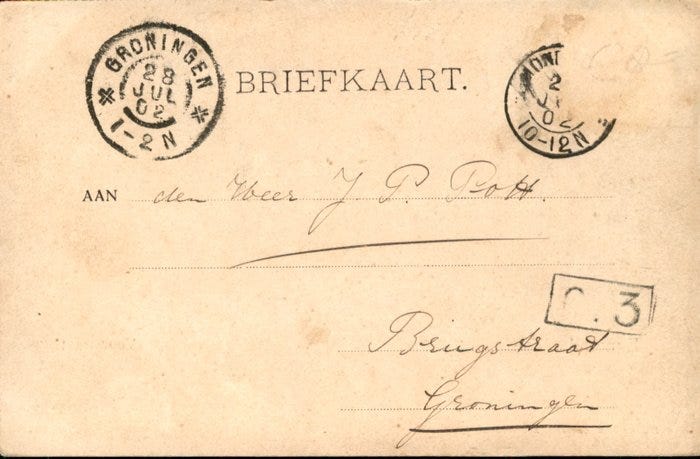 GRONINGEN
28
JUL
02
1-2 N
BRIEFKAART.
2
02
10-12N
AAN den Heer J. P. Pott.
3
Brugstraat
Groningen